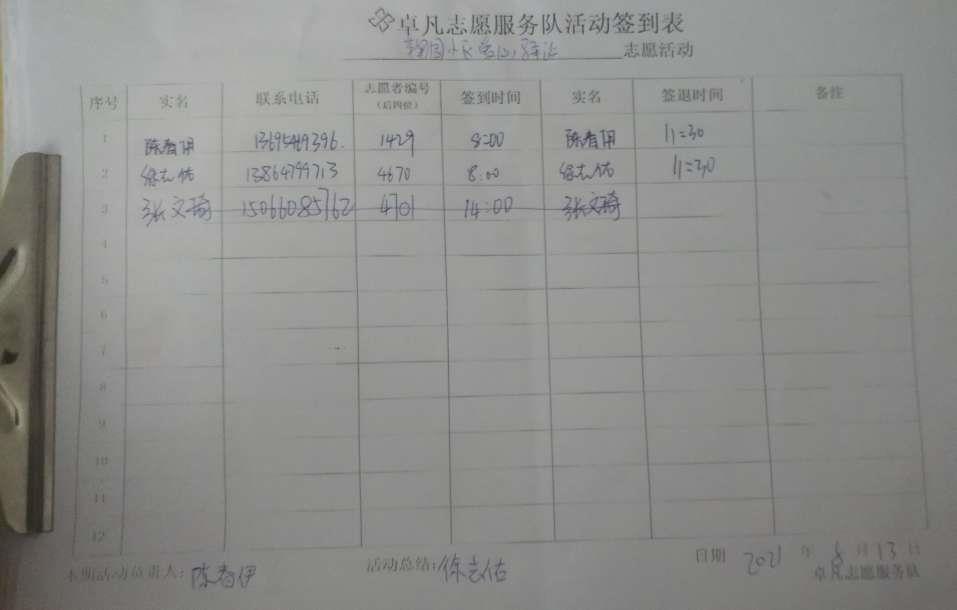 卓凡志愿服务队活动签到表
志愿活动
序号 实名 联系电话 志愿者编号（后四位） 签到时间 实名 签退时间 备注
1 陈春 1429 8:00 陈春 11:30
2 徐志佑 13864799713 4670 8:00 徐志佑 11:30
3 张文琦 15066085762 4701 14:00 张文琦
4
5
6
7
8
9
10
11
12
本期活动负责人：陈春伊 活动总结：徐志佑 日期 2021年8月13日
卓凡志愿服务队